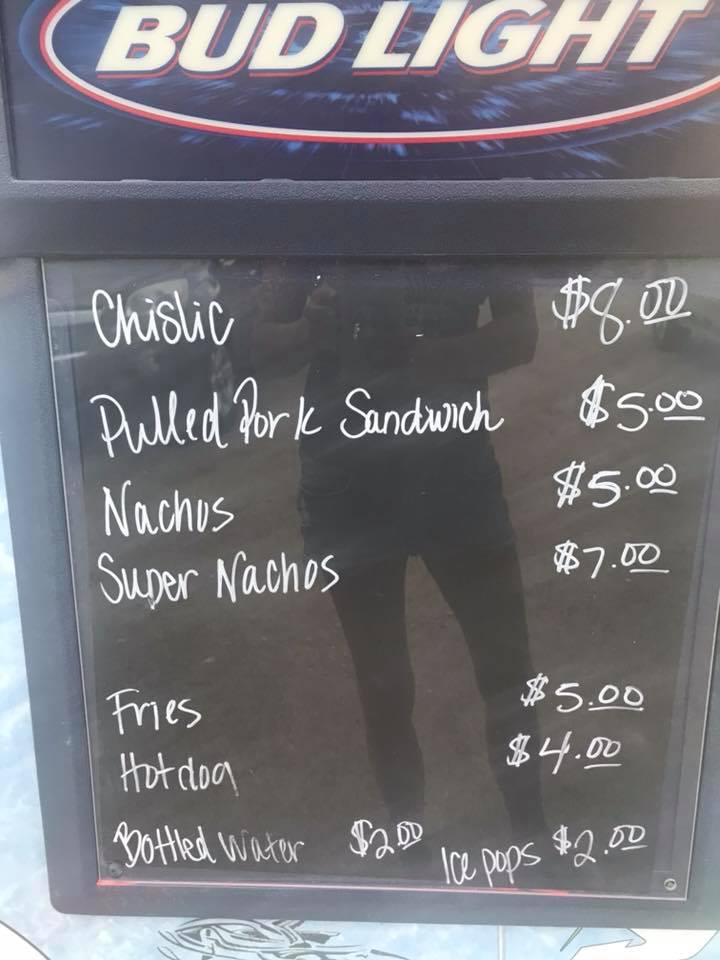 BUD LIGHT
Chislic $8.00
Pulled Pork Sandwich $5.00
Nachos $5.00
Super Nachos $7.00
Fries $5.00
Hotdog $4.00
Bottled Water $2.00 Ice pops $2.00